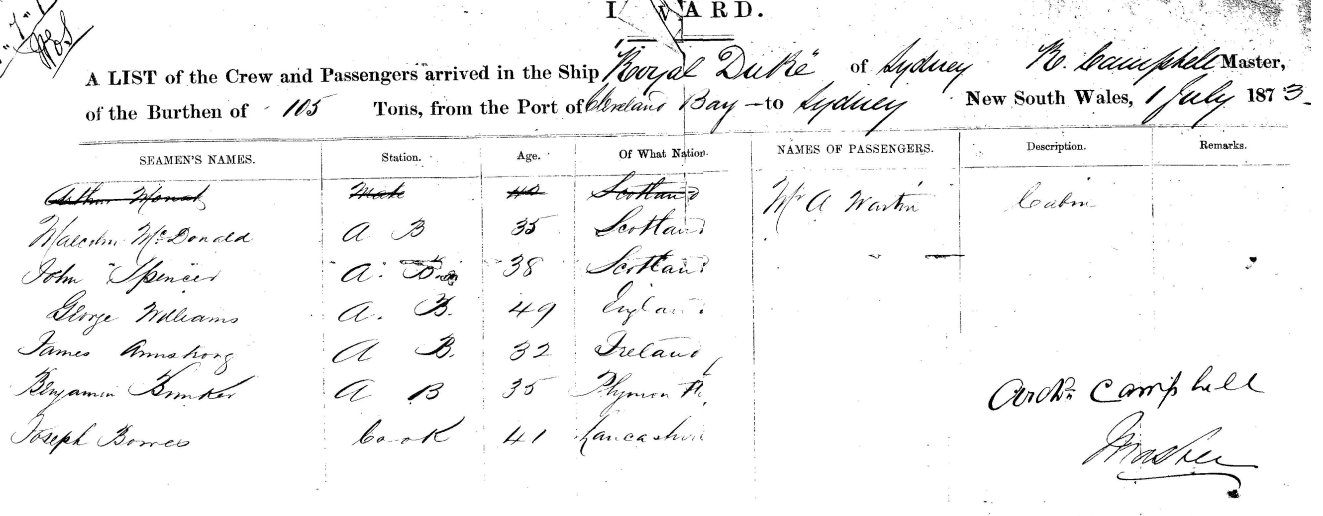 I WARD.
A LIST of the Crew and Passengers arrived in the Ship "Royal Duke" of Sydney R. Campbell Master,
of the Burthen of 105 Tons, from the Port of Cleveland Bay - to Sydney New South Wales, 1 July 1873.
SEAMEN'S NAMES. Station. Age. Of What Nation. NAMES OF PASSENGERS. Description. Remarks.
Arthur Mate 40 Scotland Mr A Cabin
Malcolm McDonald A B 35 Scotland
John Spencer A. B. 38 Scotland
George Williams A. B. 49 England
James Armstrong A B. 32 Ireland
Benjamin A B 35 Plymouth
Joseph Cook 41 Lancashire
Archd. Campbell
Master